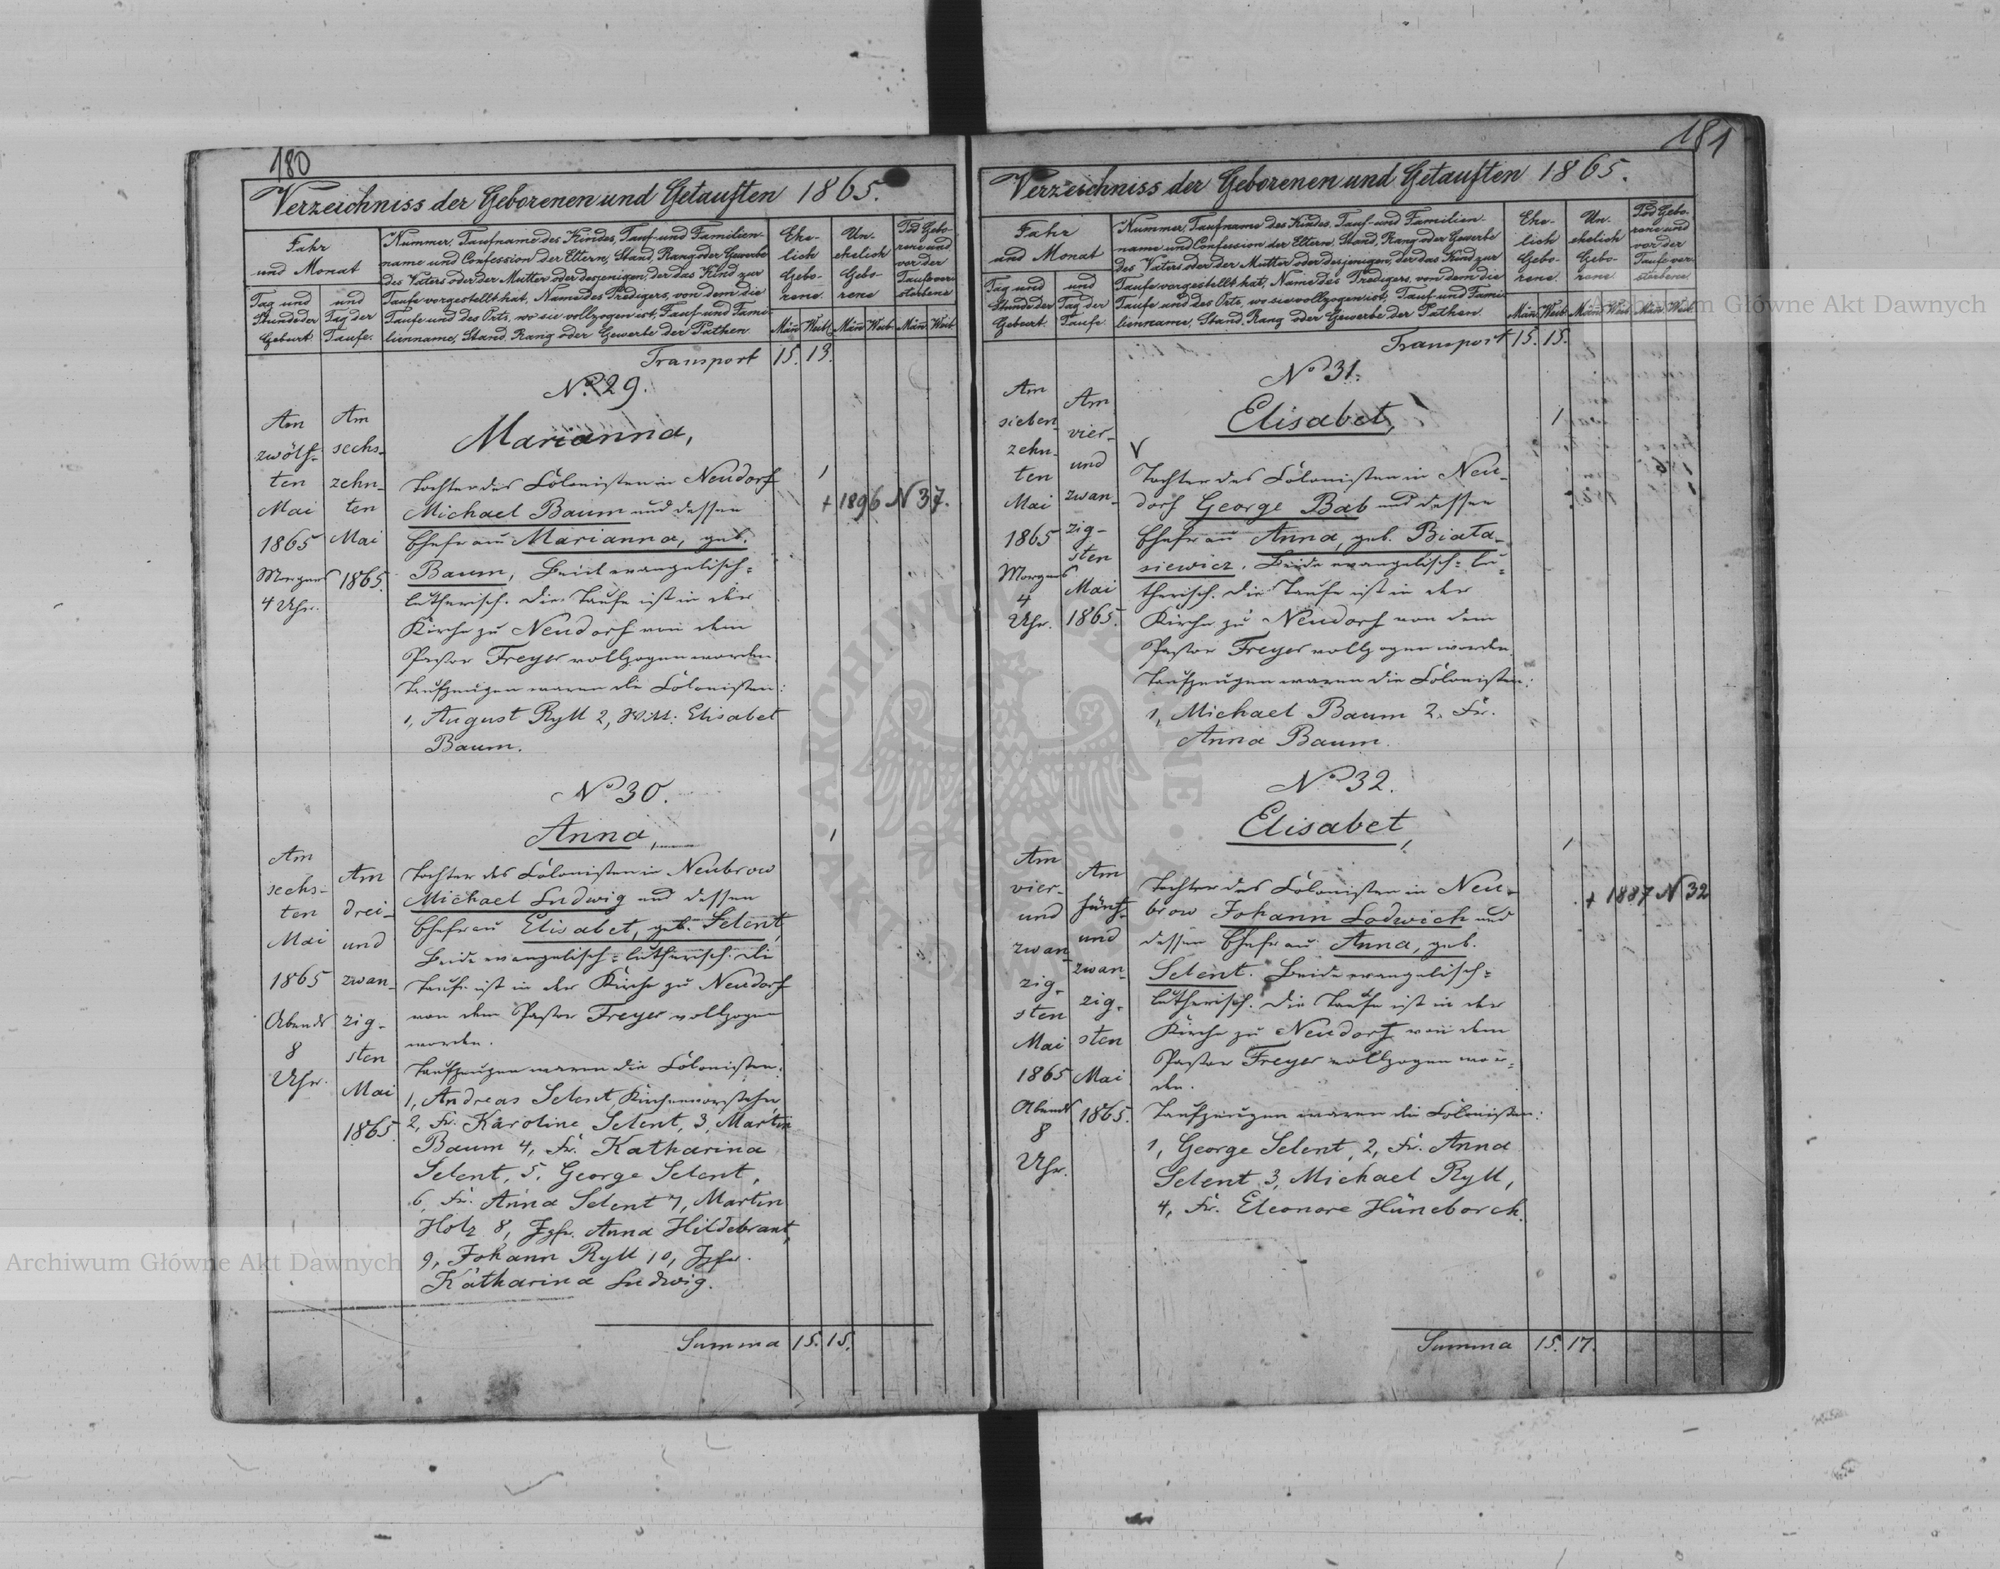 180
Verzeichniss der Geborenen und Getauften 1865.
Jahr
und Monat
Tag und
Stunde der
Geburt.
und
Tag der
Taufe.
Nummer, Taufname des Kindes, Tauf- und Familien-
name und Confession der Eltern, Stand, Rang oder Gewerbe
des Vaters oder der Mutter oder derjenigen, der das Kind zur
Taufe vorgestellt hat, Name des Predigers, von dem die
Taufe und des Orts, wo sie vollzogen ist, Tauf- und Fami-
lienname, Stand, Rang oder Gewerbe der Pathen.
Ehe-
lich
Gebo-
rene.
Un-
ehelich
Gebo-
rene
Tod Gebo-
rene und
vor der
Taufe ver-
storbene
Män Weib. Män Weib Män Weib
Transport 15. 13.
No 29.
Am
zwölf-
ten
Mai
1865
Morgens
4 Uhr.
Am
sechs-
zehn-
ten
Mai
1865.
Marianna,
Tochter des Colonisten in Neudorf
Michael Baum und dessen
Ehefrau Marianna, geb.
Baum, Beide evangelisch-
lutherisch. Die Taufe ist in der
Kirche zu Neudorf von dem
Pastor Freyer vollzogen worden.
Taufzeugen waren die Colonisten:
1, August Ryll 2, Witt: Elisabet
Baum.
1
+ 1896 N 37.
No 30.
Am
sechs-
ten
Mai
1865
Abends
8
Uhr.
Am
drei-
und
zwan-
zig-
sten
Mai
1865.
Anna,
Tochter des Colonisten in Neubrow
Michael Ludwig und dessen
Ehefrau Elisabet, geb. Selent,
Beide evangelisch-lutherisch. Die
Taufe ist in der Kirche zu Neudorf
von dem Pastor Freyer vollzogen
worden.
Taufzeugen waren die Colonisten:
1, Andreas Selent, Kirchenvorsteher
2, Fr. Karoline Selent, 3, Martin
Baum 4, Fr. Katharina
Selent, 5, George Selent,
6, Fr. Anna Selent 7, Martin
Holz 8, Jgfr. Anna Hildebrant,
9, Johann Ryll 10, Jgfr.
Katharina Ludwig.
1
Summa 15. 15.
181
Verzeichniss der Geborenen und Getauften 1865.
Jahr
und Monat
Tag und
Stunde der
Geburt.
und
Tag der
Taufe.
Nummer, Taufname des Kindes, Tauf- und Familien-
name und Confession der Eltern, Stand, Rang oder Gewerbe
des Vaters oder der Mutter oder desjenigen, der das Kind zur
Taufe vorgestellt hat, Name des Predigers, von dem die
Taufe und des Orts, wo sie vollzogen ist, Tauf- und Fami-
lienname, Stand, Rang oder Gewerbe der Pathen.
Ehe-
lich
Gebo-
rene.
Un-
ehelich
Gebo-
rene.
Tod Gebo-
rene und
vor der
Taufe ver-
storbene
Män Weib. Män Weib Män Weib
Transport 15. 15.
No 31.
Am
sieben-
zehn-
ten
Mai
1865
Morgens
4
Uhr.
Am
vier-
und
zwan-
zig-
sten
Mai
1865.
Elisabet,
Tochter des Colonisten in Neu-
dorf George Bab und dessen
Ehefrau Anna, geb. Biata-
siewicz. Beide evangelisch-lu-
therisch. Die Taufe ist in der
Kirche zu Neudorf von dem
Pastor Freyer vollzogen worden.
Taufzeugen waren die Colonisten:
1, Michael Baum 2, Fr.
Anna Baum.
1
No 32.
Am
vier-
und
zwan-
zig-
sten
Mai
1865
Abends
8
Uhr.
Am
fünf-
und
zwan-
zig-
sten
Mai
1865.
Elisabet,
Tochter des Colonisten in Neu-
brow Johann Lodwich und
dessen Ehefrau Anna, geb.
Selent. Beide evangelisch-
lutherisch. Die Taufe ist in der
Kirche zu Neudorf von dem
Pastor Freyer vollzogen wor-
den.
Taufzeugen waren die Colonisten:
1, George Selent, 2, Fr. Anna
Selent 3, Michael Ryll,
4, Fr. Eleonore Hüneborch.
1
+ 1887 N 32
Summa 15. 17.
Archiwum Główne Akt Dawnych
Archiwum Główne Akt Dawnych